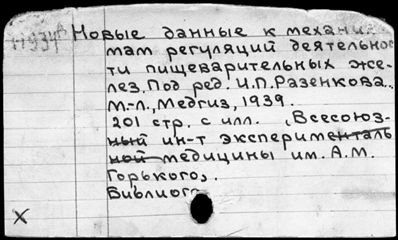 Новые данные к механиз
мам регуляций деятельнос
ти пищеварительных же-
лез. Под ред. И.П. Разенкова.
М.-Л., Медгиз, 1939.
201 стр. с илл. (Всесоюз-
ный ин-т эксперименталь
ной медицины им. А.М.
Горького).
Библиогр
X